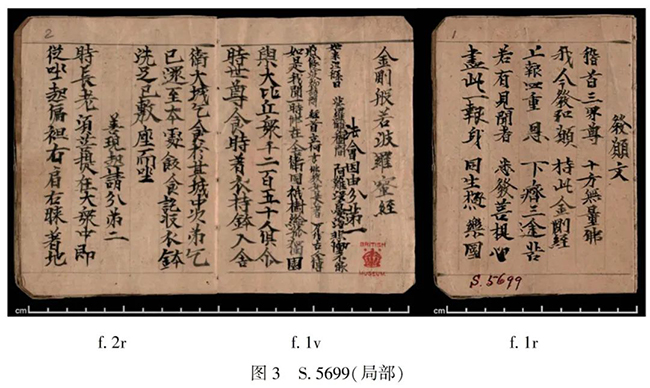 1
發願文
稽首三界尊 十方無量佛
我今發和願 持此金剛經
上報四重恩 下濟三途苦
若有見聞者 悉發菩提心
盡此一報身 同生極樂國
S.5699
金剛般若波羅蜜經
法會因由分第一
如是我聞一時佛在舍衛國祇樹給孤獨園
與大比丘眾千二百五十人俱尒
時世尊食時著衣持鉢入舍
BRITISH
MUSEUM
2
衛大城乞食於其城中次第乞
已還至本處飯食訖收衣鉢
洗足已敷座而坐
善現起請分第二
時長老須菩提在大眾中即
從坐起偏袒右肩右膝著地
cm
cm
f. 2r
f. 1v
f. 1r
图 3 S. 5699(局部)